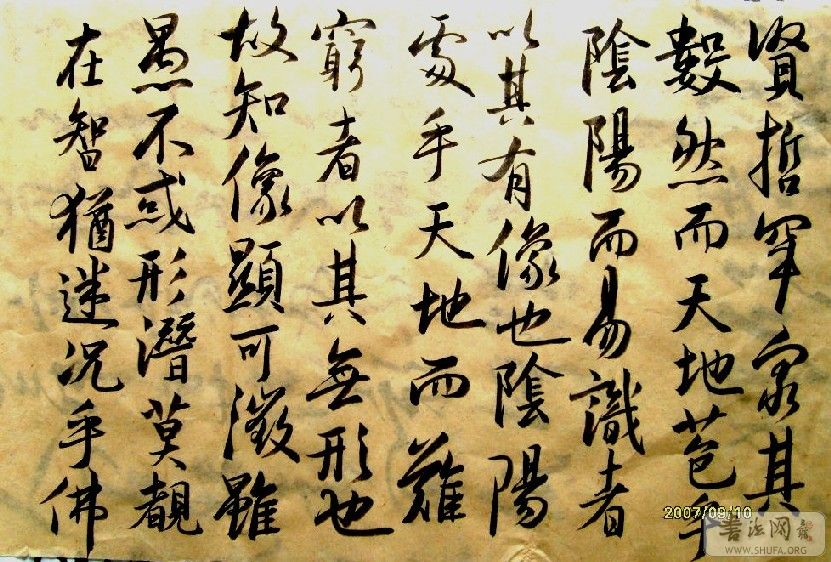 賢哲罕窮其
數然而天地苞乎
陰陽而易識者
以其有像也陰陽
處乎天地而難
窮者以其無形也
故知像顯可徵雖
愚不惑形潛莫覩
在智猶迷況乎佛
2007/09/10
书法网
WWW.SHUFA.ORG